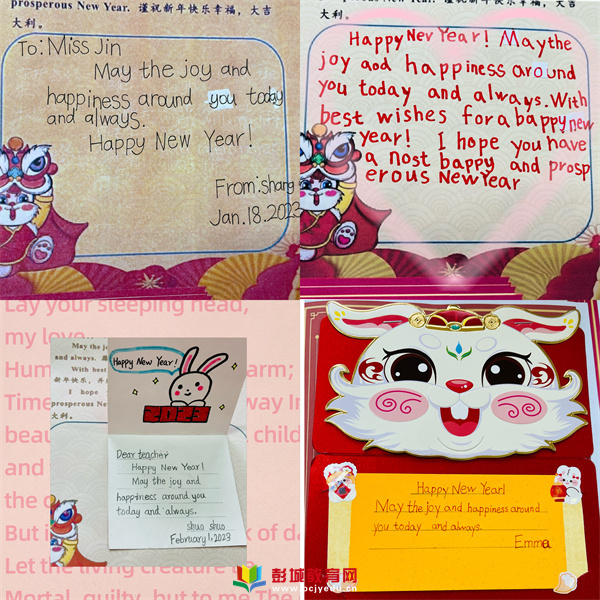 prosperous New Year. 谨祝新年快乐幸福，大吉
大利。
To: Miss Jin
May the joy and
happiness around you today
and always.
Happy New Year!
From: shang
Jan.18.2023
prosperous New Year. 谨祝新年快乐幸福，大吉
大利。
Happy New Year! May the
joy aod happiness around
you today and always. With
best wishes for a bappy new
year! I hope you have
a nost bappy and prosp
erous New Year
Lay your sleeping head,
my love
Hum
arm;
Time
way In
beau
child
and
the
But i
k of da
Let the living creature
Mortal, guilty, but to me The
May the jo
and always.
With best
新年快乐，并
I hope
prosperous New
大利。
Happy New Year!
2023
Dear teacher
Happy New Year!
May the joy and
happiness around you
today and always.
shuo shuo
February 1, 2023
Happy New Year!
May the joy and happiness around
you today and always.
Emma
彭城教育网
www.pcjyedu.cn